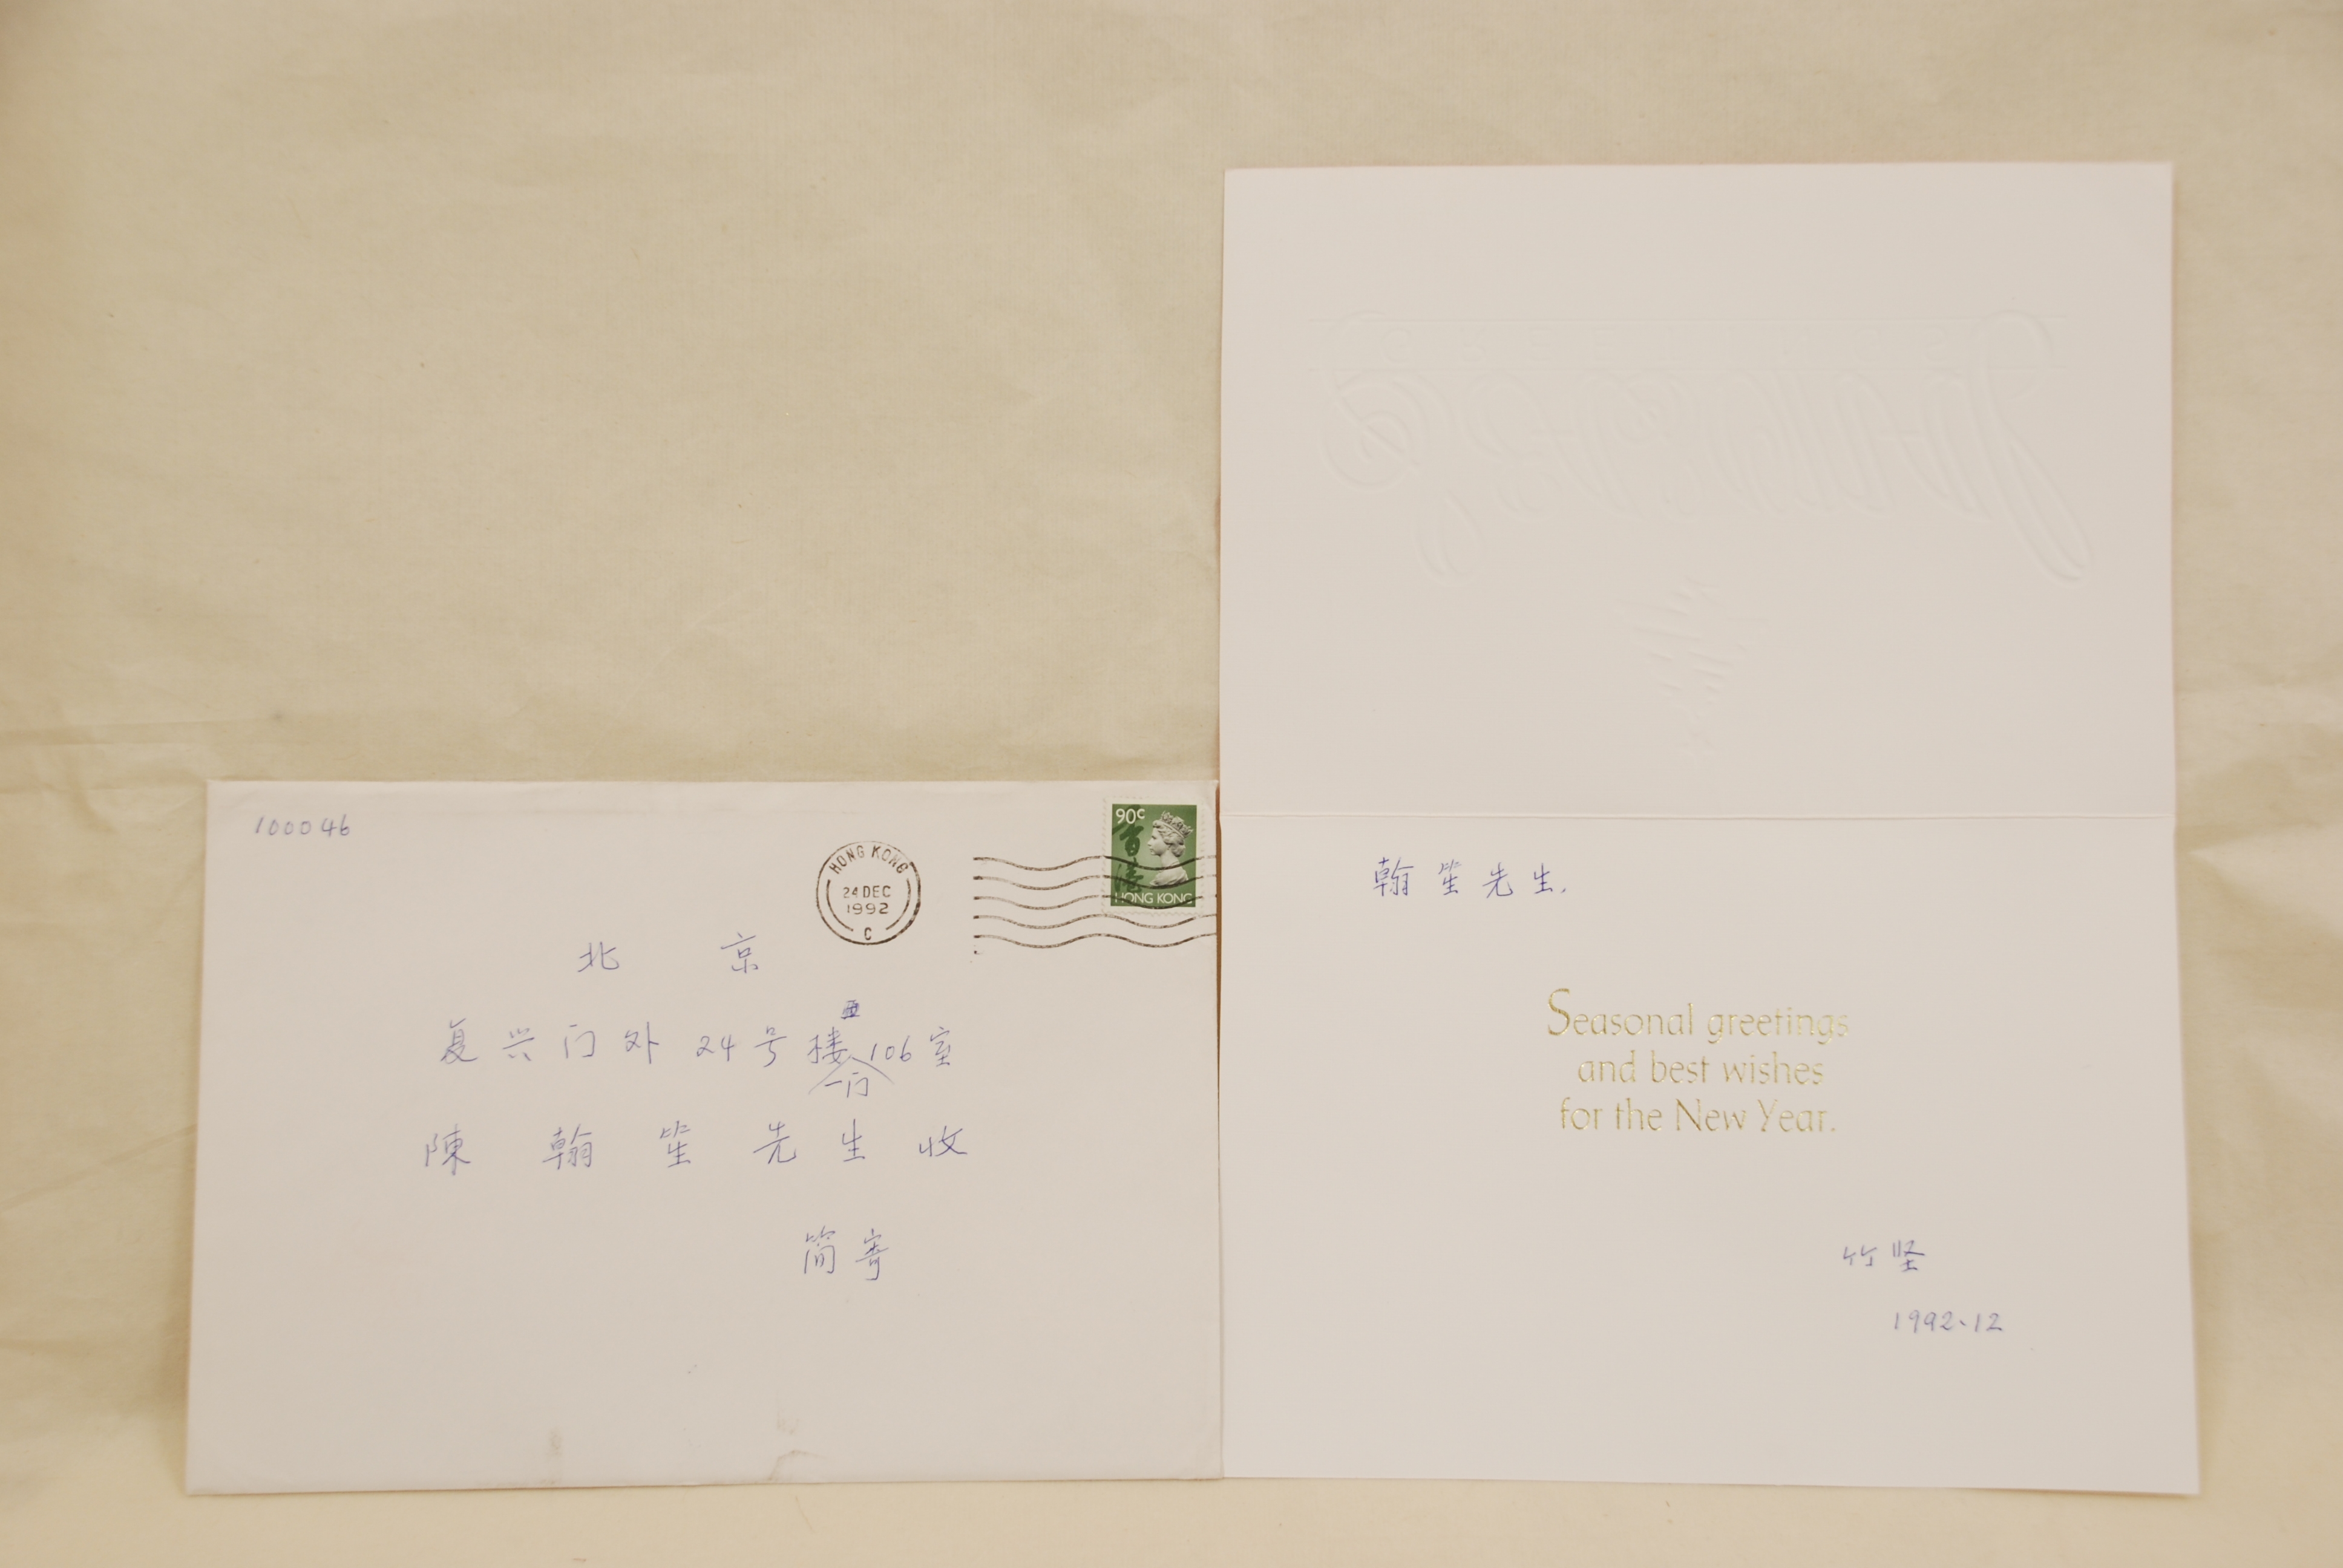 100046
HONG KONG
24 DEC
1992
C
90c
香港
HONG KONG
北京
复兴门外24号楼一门106室
陳翰笙先生收
简寄
GREETINGS
翰笙先生.
Seasonal greetings
and best wishes
for the New Year.
竹坚
1992.12